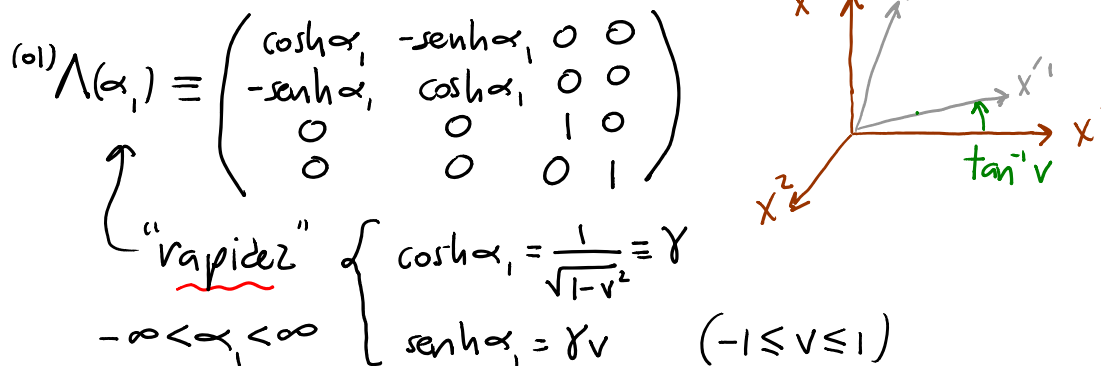 ⁽⁰¹⁾Λ(α₁) ≡ ( coshα₁ -senhα₁ 0 0
-senhα₁ coshα₁ 0 0
0 0 1 0
0 0 0 1 )
"rapidez" { coshα₁ = 1/√(1-v²) ≡ γ
-∞<α₁<∞ senhα₁ = γv (-1≤v≤1)
X
X'¹
X
tan⁻¹ v
X²